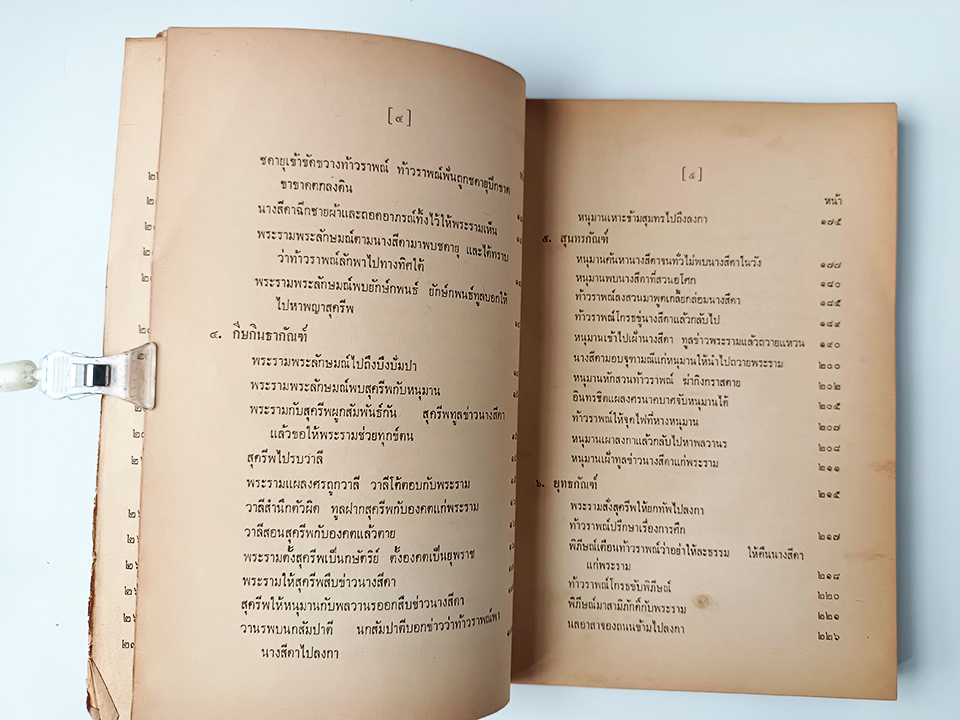 [๔]
ชดายุเข้าขัดขวางท้าวราพณ์ ท้าวราพณ์ฟันถูกชดายุปีกขาด
ขาขาดตกลงดิน
นางสีดาฉีกชายผ้าและถอดอาภรณ์ทิ้งไว้ให้พระรามเห็น
พระรามพระลักษมณ์ตามนางสีดามาพบชดายุ และได้ทราบ
ว่าท้าวราพณ์ลักพาไปทางทิศใต้
พระรามพระลักษมณ์พบยักษ์กพนธ์ ยักษ์กพนธ์ทูลบอกให้
ไปหาพญาสุครีพ
๔. กีษกินธากัณฑ์
พระรามพระลักษมณ์ไปถึงบึงบัมปา
พระรามพระลักษมณ์พบสุครีพกับหนุมาน
พระรามกับสุครีพผูกสัมพันธ์กัน สุครีพทูลข่าวนางสีดา
แล้วขอให้พระรามช่วยทุกข์ตน
สุครีพไปรบวาลี
พระรามแผลงศรถูกวาลี วาลีโต้ตอบกับพระราม
วาลีสำนึกตัวผิด ทูลฝากสุครีพกับองคตแก่พระราม
วาลีสอนสุครีพกับองคตแล้วตาย
พระรามตั้งสุครีพเป็นกษัตริย์ ตั้งองคตเป็นยุพราช
พระรามให้สุครีพสืบข่าวนางสีดา
สุครีพให้หนุมานกับพลวานรออกสืบข่าวนางสีดา
วานรพบนกสัมปาตี นกสัมปาตีบอกข่าวว่าท้าวราพณ์พา
นางสีดาไปลงกา
[๕]
หน้า
หนุมานเหาะข้ามสมุทรไปถึงลงกา ๑๗๕
๕. สุนทรกัณฑ์
หนุมานค้นหานางสีดาจนทั่วไม่พบนางสีดาในวัง ๑๗๗
หนุมานพบนางสีดาที่สวนอโศก ๑๘๐
ท้าวราพณ์ลงสวนมาพูดเกลี้ยกล่อมนางสีดา ๑๘๕
ท้าวราพณ์โกรธขู่นางสีดาแล้วกลับไป ๑๘๙
หนุมานเข้าไปเฝ้านางสีดา ทูลข่าวพระรามแล้วถวายแหวน ๑๙๐
นางสีดามอบจุฑามณีแก่หนุมานให้นำไปถวายพระราม ๒๐๐
หนุมานหักสวนท้าวราพณ์ ฆ่ากิงกราสตาย ๒๐๒
อินทรชิตแผลงศรนาคบาศจับหนุมานได้ ๒๐๕
ท้าวราพณ์ให้จุดไฟที่หางหนุมาน ๒๐๗
หนุมานเผาลงกาแล้วกลับไปหาพลวานร ๒๐๘
หนุมานเฝ้าทูลข่าวนางสีดาแก่พระราม ๒๑๑
๖. ยุทธกัณฑ์
พระรามสั่งสุครีพให้ยกทัพไปลงกา ๒๑๕
ท้าวราพณ์ปรึกษาเรื่องการศึก ๒๑๗
พิภีษณ์เตือนท้าวราพณ์ว่าอย่าให้ละธรรม ให้คืนนางสีดา
แก่พระราม ๒๑๘
ท้าวราพณ์โกรธขับพิภีษณ์ ๒๒๐
พิภีษณ์มาสามิภักดิ์กับพระราม ๒๒๑
นลอาสาจองถนนข้ามไปลงกา ๒๒๖